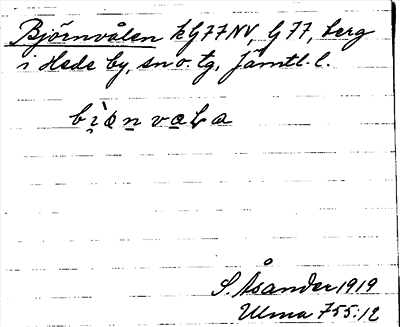 Björnvålen kG77NV, G77, berg
i Hede by, sn o. tg, Jämtl. l.
bìo̤n vala
S. Åsander 1919
Ulma 755:12